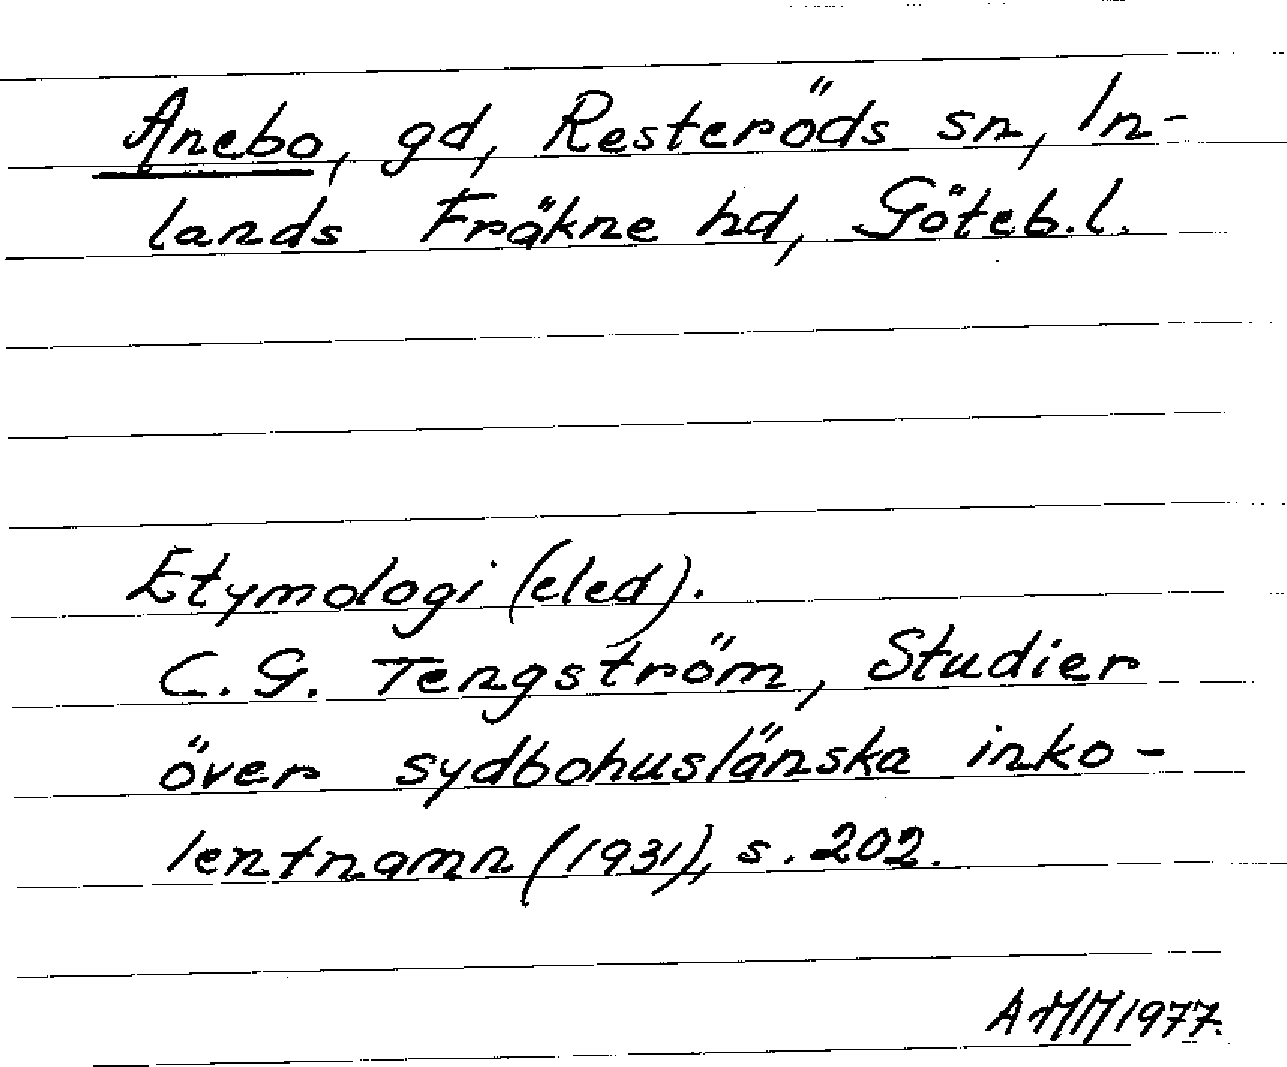 Anebo, gd, Resteröds sn, In-
lands Fräkne hd, Göteb.l.
Etymologi (eled).
C. G. Tengström, Studier
över sydbohuslänska inko-
lentnamn (1931), s. 202.
AMM 1977.